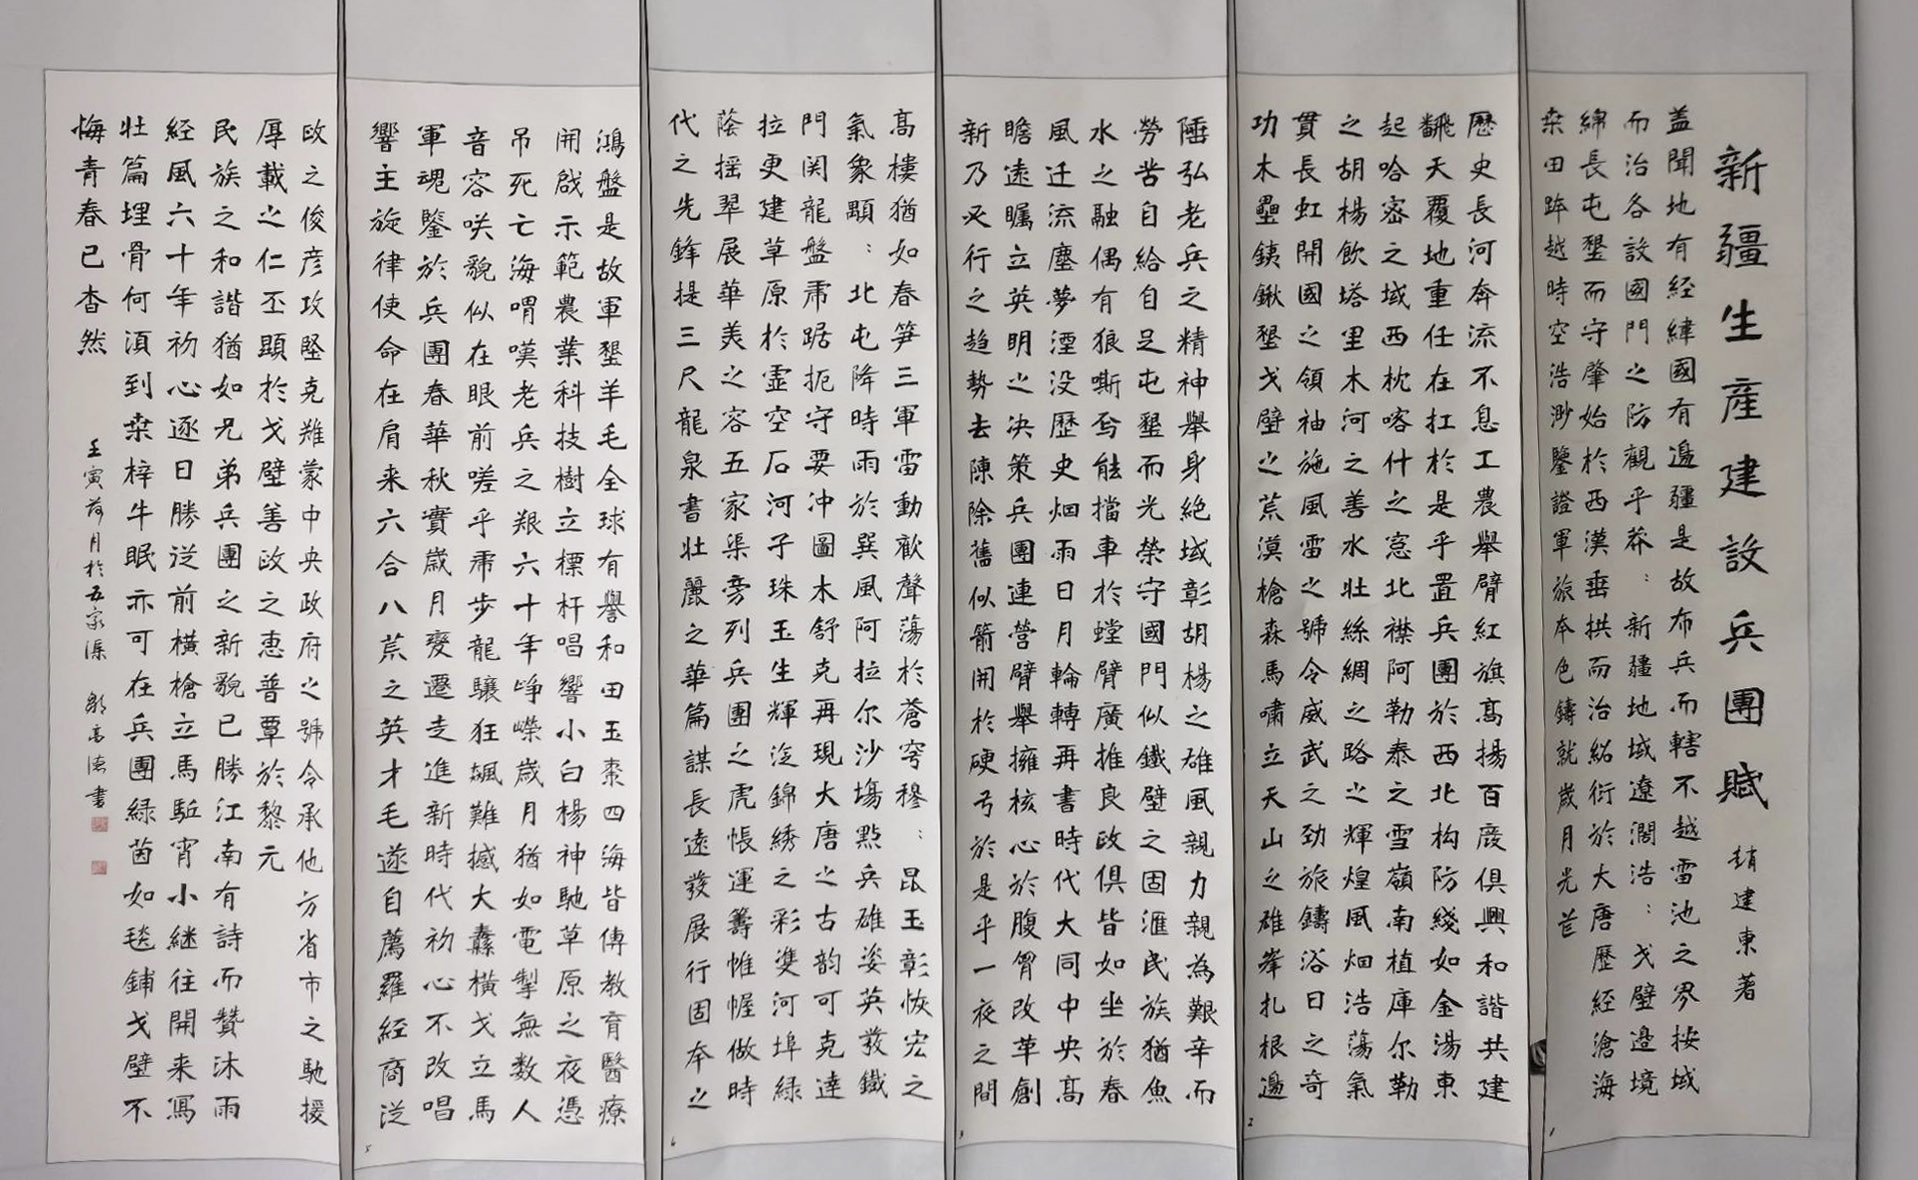 新疆生產建設兵團賦
趙建東著
盖聞地有経緯國有邊疆是故布兵而轄不越雷池之界按域
而治各設國門之防觀乎莽：新疆地域遼濶浩：戈壁邊境
綿長屯墾而守肇始於西漢垂拱而治絡衍於大唐歷經滄海
桒田跨越時空浩渺鑒證軍旅本色鑄就歲月光芒
歷史長河奔流不息工農舉臂紅旗高揚百廢俱興和諧共建
翻天覆地重任在扛於是乎置兵團於西北构防綫如金湯東
起哈密之域西枕喀什之窓北襟阿勒泰之雪嶺南植庫尔勒
之胡楊飲塔里木河之善水壮絲綢之路之輝煌風烟浩蕩氣
貫長虹開國之領袖施風雷之號令威武之劲旅鑄浴日之奇
功木壘銕鍬墾戈壁之荒漠槍森馬嘯立天山之雄峯扎根邊
陲弘老兵之精神舉身絶域彰胡楊之雄風親力親為艱辛而
勞苦自給自足屯墾而光榮守國門似鐵壁之固滙民族猶魚
水之融偶有狼嘶焉能擋車於螳臂廣推良政俱皆如坐於春
風迁流塵夢湮没歷史烟雨日月輪轉再書時代大同中央高
瞻遠矚立英明之决策兵團連營臂舉擁核心於腹胷改革創
新乃必行之趋勢去陳除舊似箭開於硬弓於是乎一夜之間
高樓猶如春笋三軍雷動歡聲蕩於蒼穹穆：昆玉彰恢宏之
氣象顒：北屯降時雨於巽風阿拉尔沙場點兵雄姿英發鐵
門関龍盤虎踞扼守要冲圖木舒克再現大唐之古韵可克達
拉更建草原於霊空石河子珠玉生輝泛錦綉之彩雙河埠緑
蔭摇翠展華美之容五家渠旁列兵團之虎帳運籌帷幄做時
代之先鋒提三尺龍泉書壮麗之華篇謀長遠發展行固本之
鴻盤是故軍墾羊毛全球有譽和田玉棗四海皆傳教育醫療
開啟示範農業科技樹立標杆唱響小白楊神馳草原之夜憑
吊死亡海喟嘆老兵之艱六十年崢嶸歲月猶如電掣無数人
音容咲貌似在眼前嗟乎虎步龍驤狂飆難撼大纛橫戈立馬
軍魂鑒於兵團春華秋實歲月變遷走進新時代初心不改唱
響主旋律使命在肩来六合八荒之英才毛遂自薦羅經商従
政之俊彦攻堅克難蒙中央政府之號令承他方省市之馳援
厚載之仁丕顕於戈壁善政之惠普覃於黎元
民族之和諧猶如兄弟兵團之新貌已勝江南有詩而贊沐雨
経風六十年初心逐日勝従前橫槍立馬駈宵小継往開来寫
壮篇埋骨何湏到桒梓牛眠亦可在兵團緑茵如毯鋪戈壁不
悔青春已杳然
壬寅荷月於五家渠 書